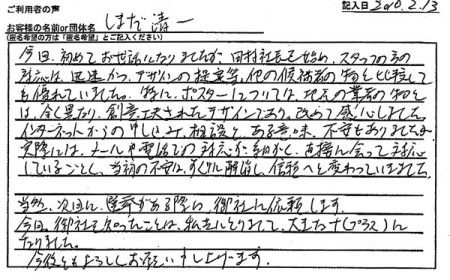 ご利用者の声
記入日 2010.2.13
お客様の名前or団体名 しまだ 清一
(匿名希望の方は「匿名希望」とご記入ください)
今回、初めてお世話になりましたが、田村社長を始め、スタッフの方の
対応は、迅速かつ、デザインの提案等、他の候補者の物と比較して
も優れていました。特に、ポスターについては、地元の業者の物と
は、全く異なり、創意工夫されたデザインであり、改めて感心しました。
インターネットからの申し込み、相談と、ある意味、不安もありましたが
実際には、メールや電話での対応が細かく、直接に会って対応
しているごとく、当初の不安は、すぐに解消し、信頼へと変わっていきました。
当然、次回に、選挙がある際は、御社に依頼します。
今回、御社を知ったことは、私共にとりまして、大きな+(プラス)に
なりました。
今後ともよろしくお願い申し上げます。